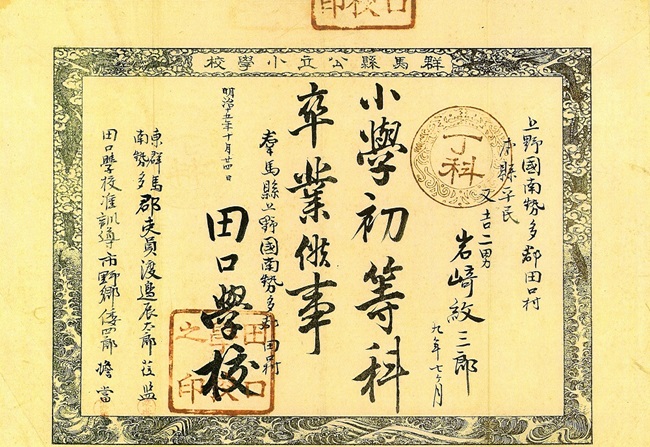 群馬縣公立小學校
上野國南勢多郡田口村
本縣平民
又吉二男
岩﨑紋三郎
九年七ヶ月
丁科
小學初等科
卒業候事
羣馬縣上野國南勢多郡田口村
田口學校
明治十五年十月廿四日
東群馬
南勢多
郡吏員渡邉辰太郎莅監
田口學校准訓導市野鄉倭四郎擔當
田口
學校
之印